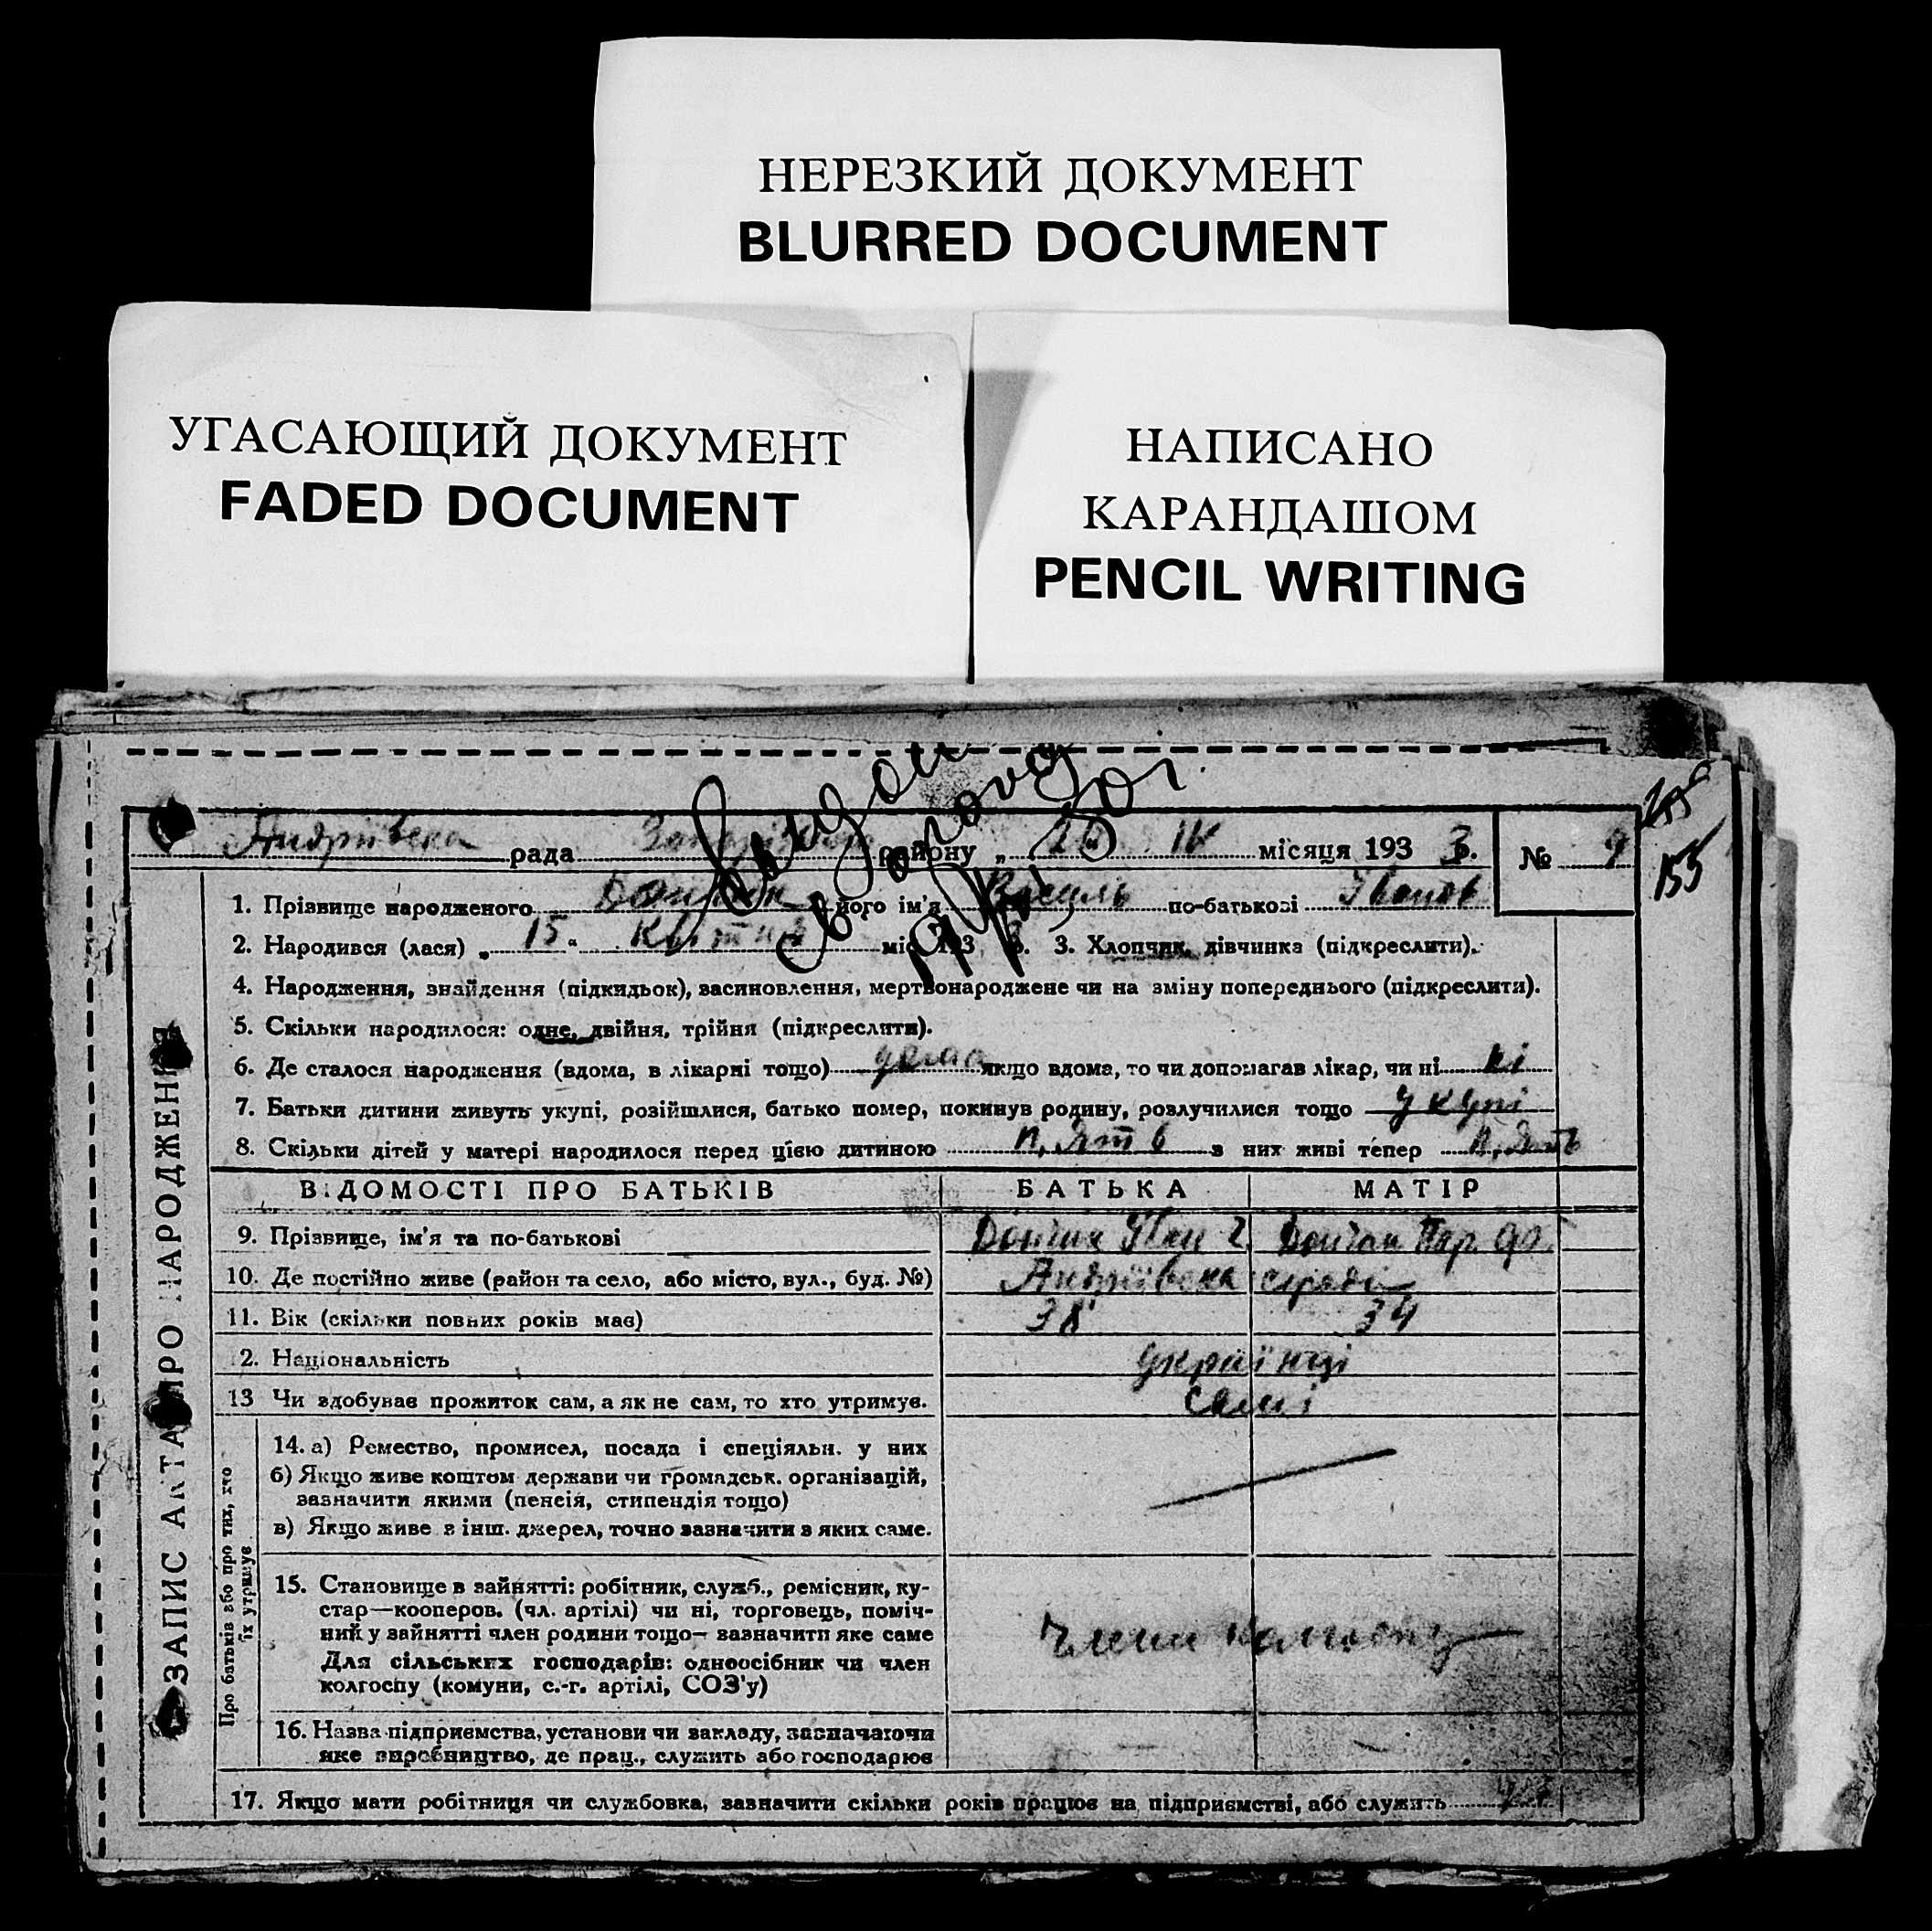 НЕРЕЗКИЙ ДОКУМЕНТ
BLURRED DOCUMENT
УГАСАЮЩИЙ ДОКУМЕНТ
FADED DOCUMENT
НАПИСАНО
КАРАНДАШОМ
PENCIL WRITING
Андріївска рада району „ 20 " IV місяця 193 3. № 9
155
1. Прізвище народженого його ім'я Василь по-батькові Іванов
2. Народився (лася) „ 15 " квітня міс. 193 3. 3. Хлопчик, дівчинка (підкреслити).
4. Народження, знайдення (підкидьок), васиновлення, мертвонароджене чи на зміну попереднього (підкреслити).
5. Скільки народилося: одне, двійня, трійня (підкреслити).
6. Де сталося народження (вдома, в лікарні тощо) якщо вдома, то чи допомагав лікар, чи ні ні
7. Батьки дитини живуть укупі, розійшлися, батько помер, покинув родину, розлучилися тощо укупі
8. Скільки дітей у матері народилося перед цією дитиною п,ять з них живі тепер п,ять
ВІДОМОСТІ ПРО БАТЬКІВ БАТЬКА МАТІР
9. Прізвище, ім'я та по-батькові Іван
10. Де постійно живе (район та село, або місто, вул., буд. №) Андріївска
11. Вік (скільки повних років має) 38 34
12. Національність українці
13 Чи здобуває прожиток сам, а як не сам, то хто утримує. самі
14. а) Ремество, промисел, посада і спеціяльн. у них
б) Якщо живе коштом держави чи громадськ. організацій,
зазначити якими (пенсія, стипендія тощо)
в) Якщо живе з інш. джерел, точно зазначити з яких саме.
15. Становище в зайнятті: робітник, служб., ремісник, ку-
стар—кооперов. (чл. артілі) чи ні, торговець, поміч-
ний у зайнятті член родини тощо— зазначити яке саме
Для сільських господарів: одноосібник чи член
колгоспу (комуни, с.-г. артілі, СОЗ'у)
члени колгоспу
16. Назва підприємства, установи чи закладу, зазначаючи
яке виробництво, де прац., служить або господарює
17. Якщо мати робітниця чи службовка, зазначити скільки років працює на підприємстві, або служить
ЗАПИС АКТА ПРО НАРОДЖЕННЯ
Про батьків або про тих, хто
їх утримує